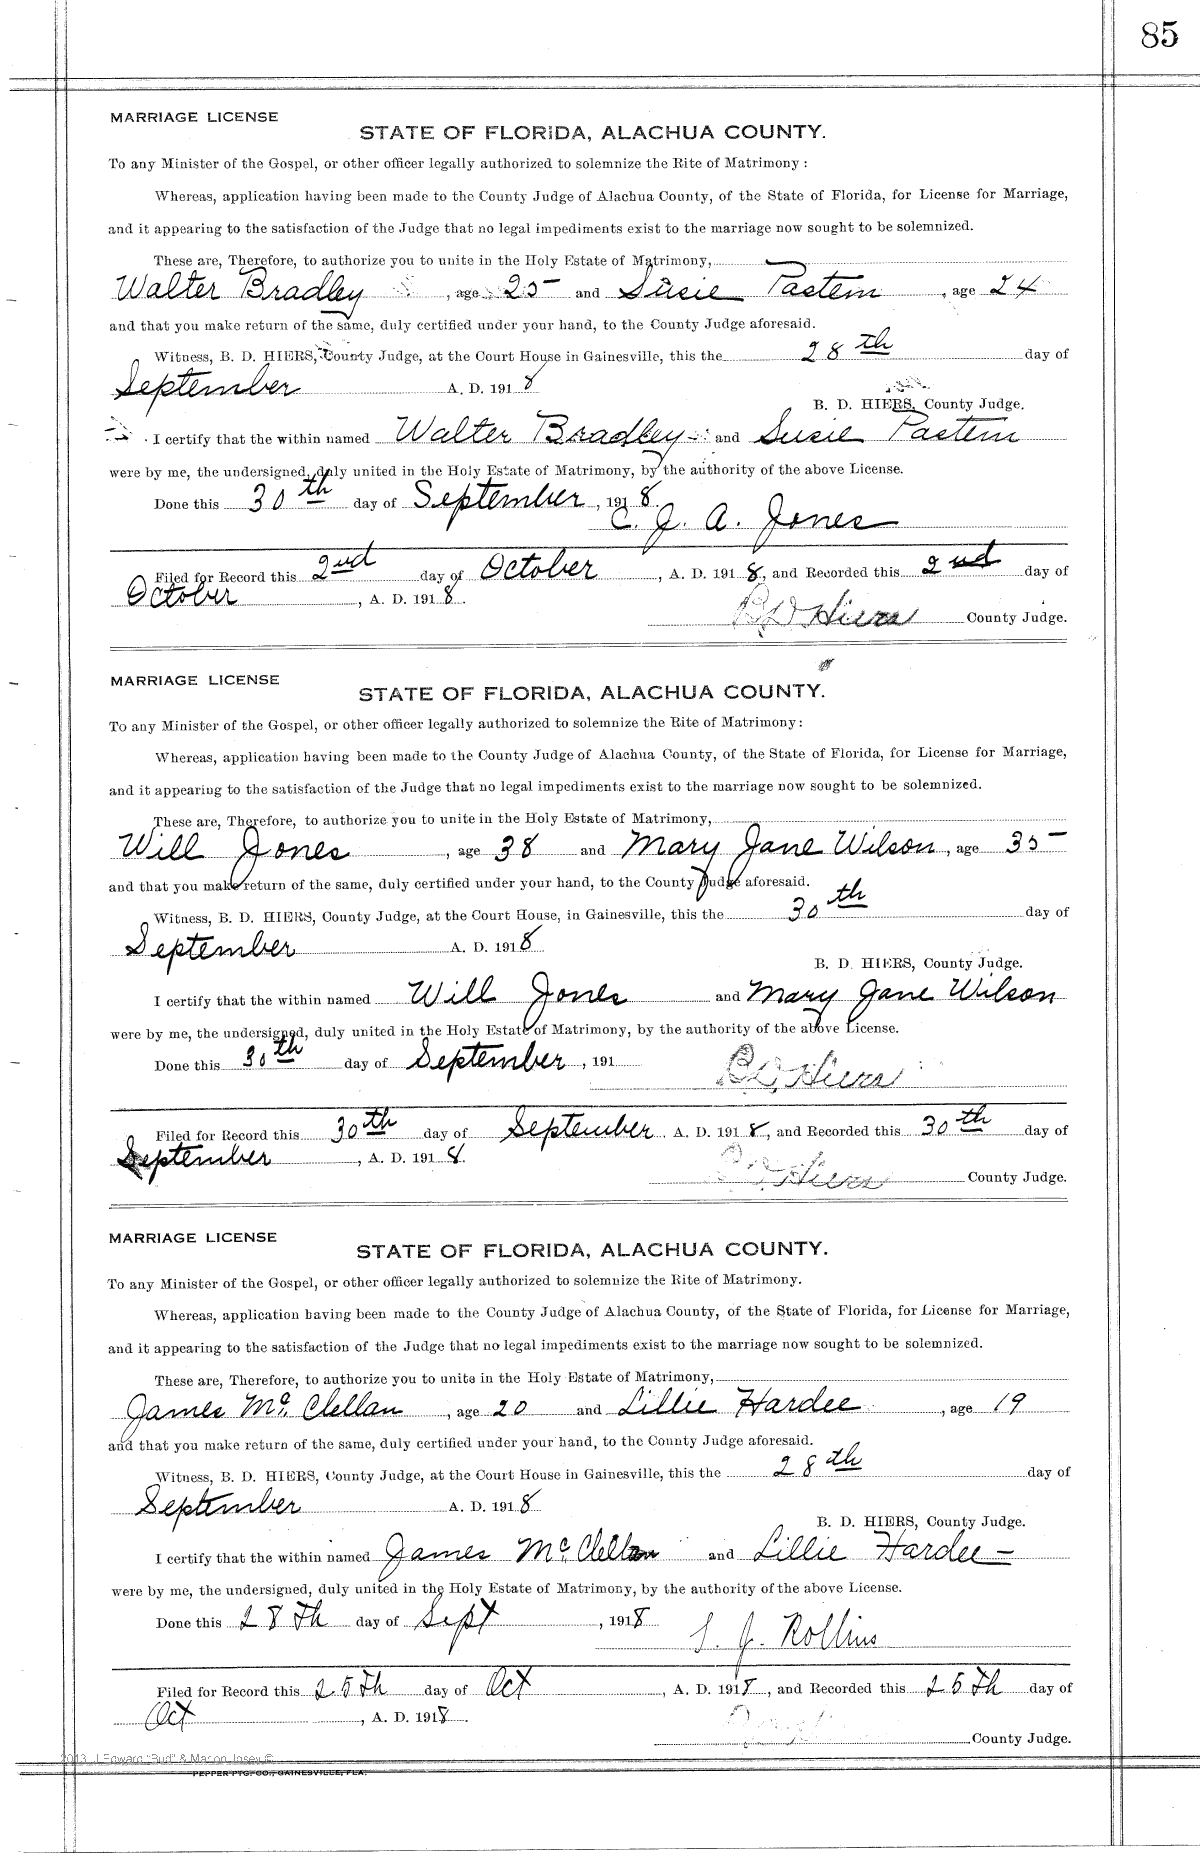 85
MARRIAGE LICENSE
STATE OF FLORIDA, ALACHUA COUNTY.
To any Minister of the Gospel, or other officer legally authorized to solemnize the Rite of Matrimony:
Whereas, application having been made to the County Judge of Alachua County, of the State of Florida, for License for Marriage,
and it appearing to the satisfaction of the Judge that no legal impediments exist to the marriage now sought to be solemnized.
These are, Therefore, to authorize you to unite in the Holy Estate of Matrimony,
Walter Bradley, age 25 and Susie Pastem, age 24
and that you make return of the same, duly certified under your hand, to the County Judge aforesaid.
Witness, B. D. HIERS, County Judge, at the Court House in Gainesville, this the 28th day of
September A. D. 1918
B. D. HIERS, County Judge.
I certify that the within named Walter Bradley and Susie Pastem
were by me, the undersigned, duly united in the Holy Estate of Matrimony, by the authority of the above License.
Done this 30th day of September, 1918.
C. J. A. Jones
Filed for Record this 2nd day of October, A. D. 1918, and Recorded this 2nd day of
October, A. D. 1918.
B D Hiers County Judge.
MARRIAGE LICENSE
STATE OF FLORIDA, ALACHUA COUNTY.
To any Minister of the Gospel, or other officer legally authorized to solemnize the Rite of Matrimony:
Whereas, application having been made to the County Judge of Alachua County, of the State of Florida, for License for Marriage,
and it appearing to the satisfaction of the Judge that no legal impediments exist to the marriage now sought to be solemnized.
These are, Therefore, to authorize you to unite in the Holy Estate of Matrimony,
Will Jones, age 38 and Mary Jane Wilson, age 35
and that you make return of the same, duly certified under your hand, to the County Judge aforesaid.
Witness, B. D. HIERS, County Judge, at the Court House, in Gainesville, this the 30th day of
September A. D. 1918
B. D. HIERS, County Judge.
I certify that the within named Will Jones and Mary Jane Wilson
were by me, the undersigned, duly united in the Holy Estate of Matrimony, by the authority of the above License.
Done this 30th day of September, 191
B D Hiers
Filed for Record this 30th day of September A. D. 1918, and Recorded this 30th day of
September, A. D. 1918.
B D Hiers County Judge.
MARRIAGE LICENSE
STATE OF FLORIDA, ALACHUA COUNTY.
To any Minister of the Gospel, or other officer legally authorized to solemnize the Rite of Matrimony.
Whereas, application having been made to the County Judge of Alachua County, of the State of Florida, for License for Marriage,
and it appearing to the satisfaction of the Judge that no legal impediments exist to the marriage now sought to be solemnized.
These are, Therefore, to authorize you to unite in the Holy Estate of Matrimony,
James Mc.Clellan, age 20 and Lillie Hardee, age 19
and that you make return of the same, duly certified under your hand, to the County Judge aforesaid.
Witness, B. D. HIERS, County Judge, at the Court House in Gainesville, this the 28th day of
September A. D. 1918
B. D. HIERS, County Judge.
I certify that the within named James Mc.Clellan and Lillie Hardee
were by me, the undersigned, duly united in the Holy Estate of Matrimony, by the authority of the above License.
Done this 28Th day of Sept, 1918
S. J. Rollins
Filed for Record this 25Th day of Oct, A. D. 1918, and Recorded this 25Th day of
Oct, A. D. 1918.
County Judge.
2013 J Edward "Bud" & Marion Josey ©
PEPPER PTG. CO., GAINESVILLE, FLA.